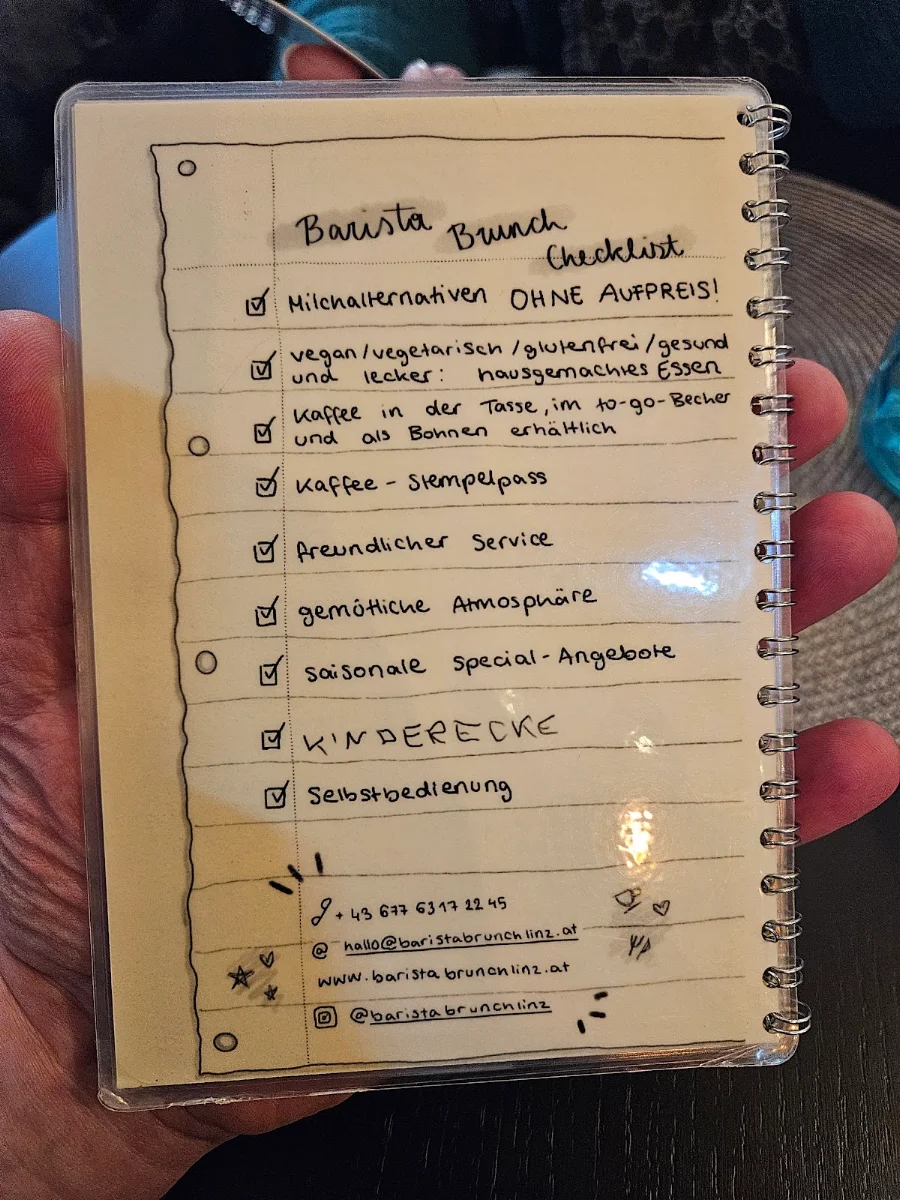 Barista Brunch
Checklist
Milchalternativen OHNE AUFPREIS!
vegan/vegetarisch/glutenfrei/gesund
und lecker: hausgemachtes Essen
Kaffee in der Tasse, im to-go-Becher
und als Bohnen erhältlich
Kaffee-Stempelpass
freundlicher Service
gemütliche Atmosphäre
saisonale Special-Angebote
KINDERECKE
Selbstbedienung
+43 677 6317 22 45
@ hallo@baristabrunchlinz.at
www.baristabrunchlinz.at
@baristabrunchlinz